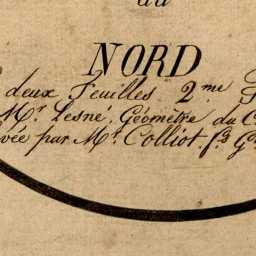 du
NORD
deux Feuilles 2.me F
Mr. Lesné, Géomètre du C
vée par Mr. Colliot fs. Gé